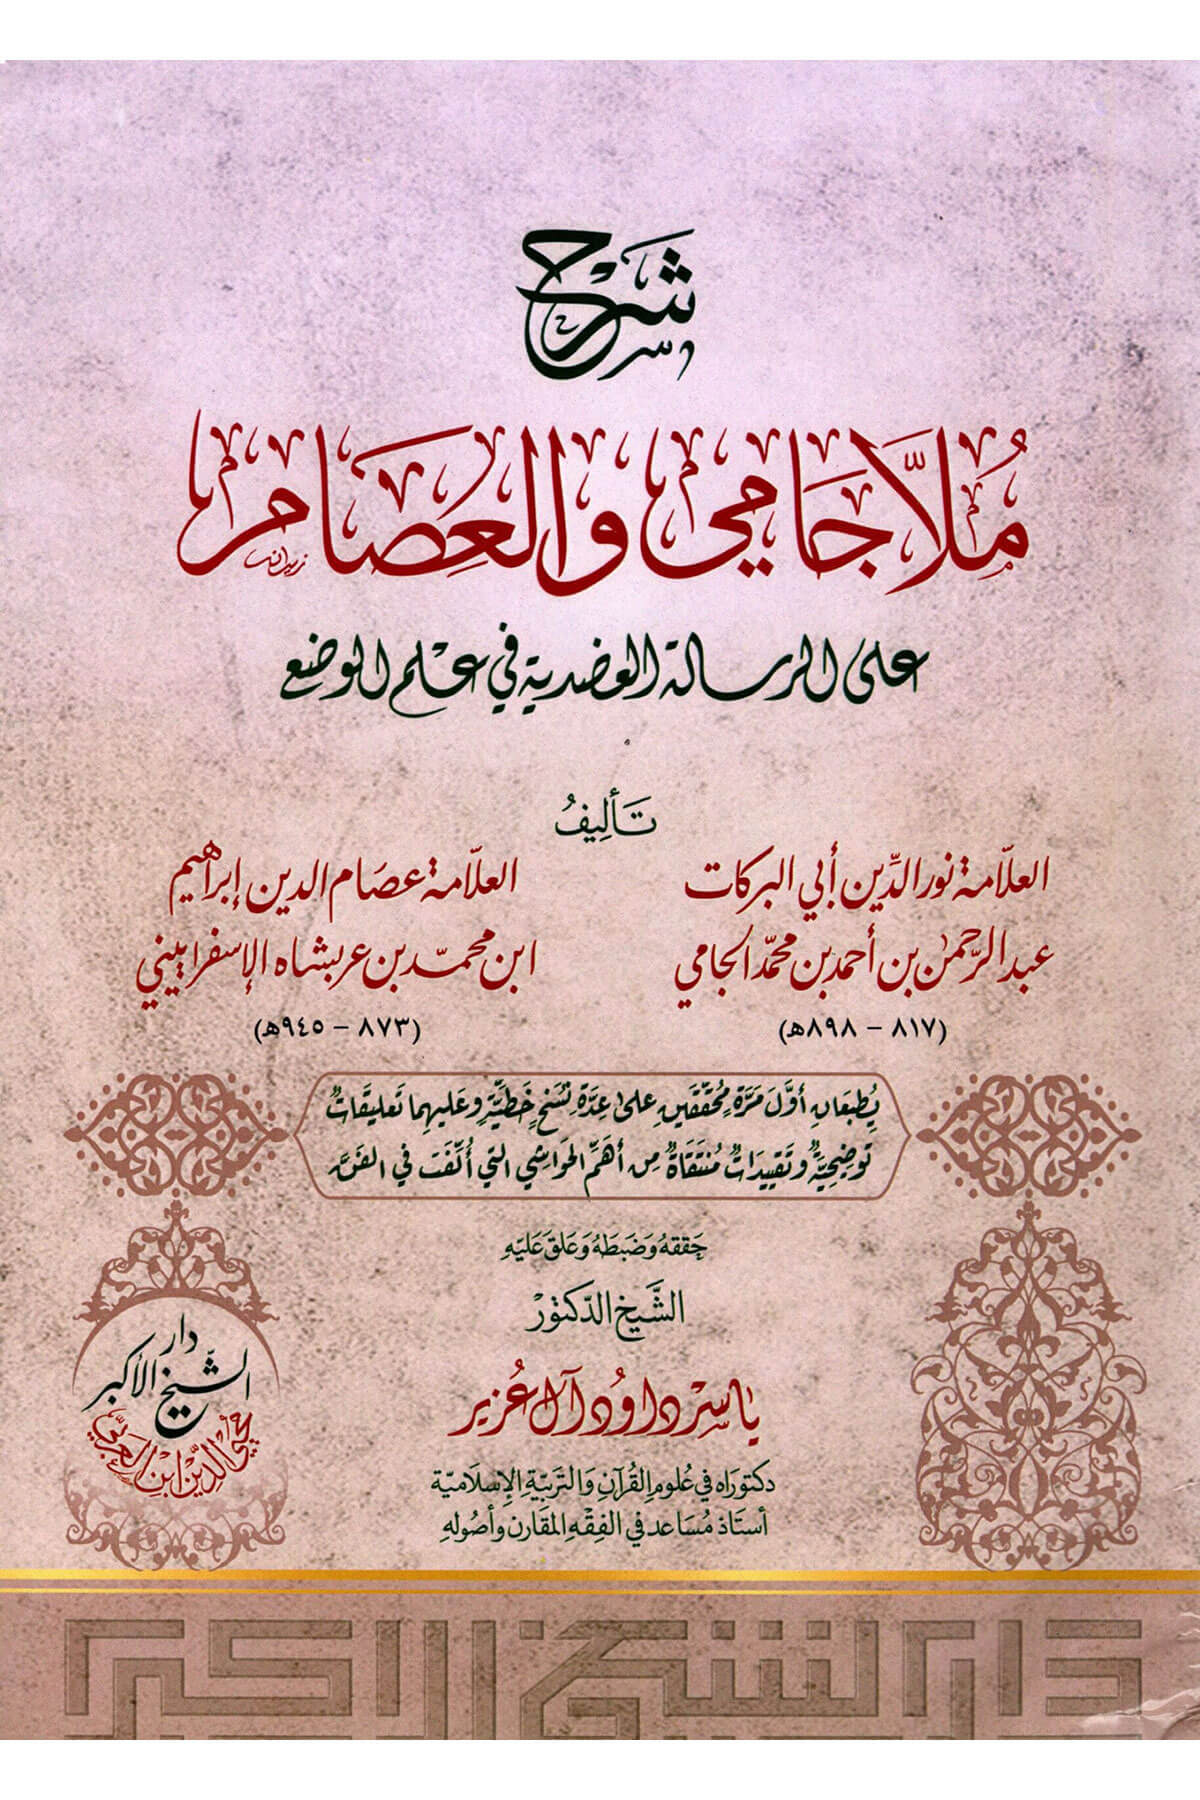 شرح
مُلَّا جَامِي وَالعِصَام
على الرسالة العضدية في علم الوضع
تَأليفُ
العلّامة نور الدِّين أبي البركات
عبد الرحمٰن بن أحمد بن محمّد الجامي
(٨١٧ – ٨٩٨هـ)
العلّامة عصام الدين إبراهيم
ابن محمّد بن عربشاه الإسفراييني
(٨٧٣ – ٩٤٥هـ)
يُطبَعَانِ أوَّلَ مَرَّة مُحَقَّقَينِ على عِدَّةِ نُسَخٍ خَطِّيَّةٍ وعَليهِما تَعليقَاتٌ
تَوضِيحِيَّةٌ وتَقييدَاتٌ مُنتَقَاةٌ مِن أهَمِّ الحَواشِي التي أُلِّفَت في الفَنِّ
حَقَقَهُ وَضَبَطَهُ وَعَلقَ عَليَهِ
الشَّيخ الدّكتوْر
يَاسر داوُد آل عُزير
دكتورَاه في عُلوم القُرآن وَالتربيّةِ الإسلَاميّة
أستَاذ مُسَاعد في الفِقْهِ المقَارن وأصُولهِ
دار
الشّيخ الأكبر
محيي الدّين ابن العَربيّ
دار الشيخ الأكبر